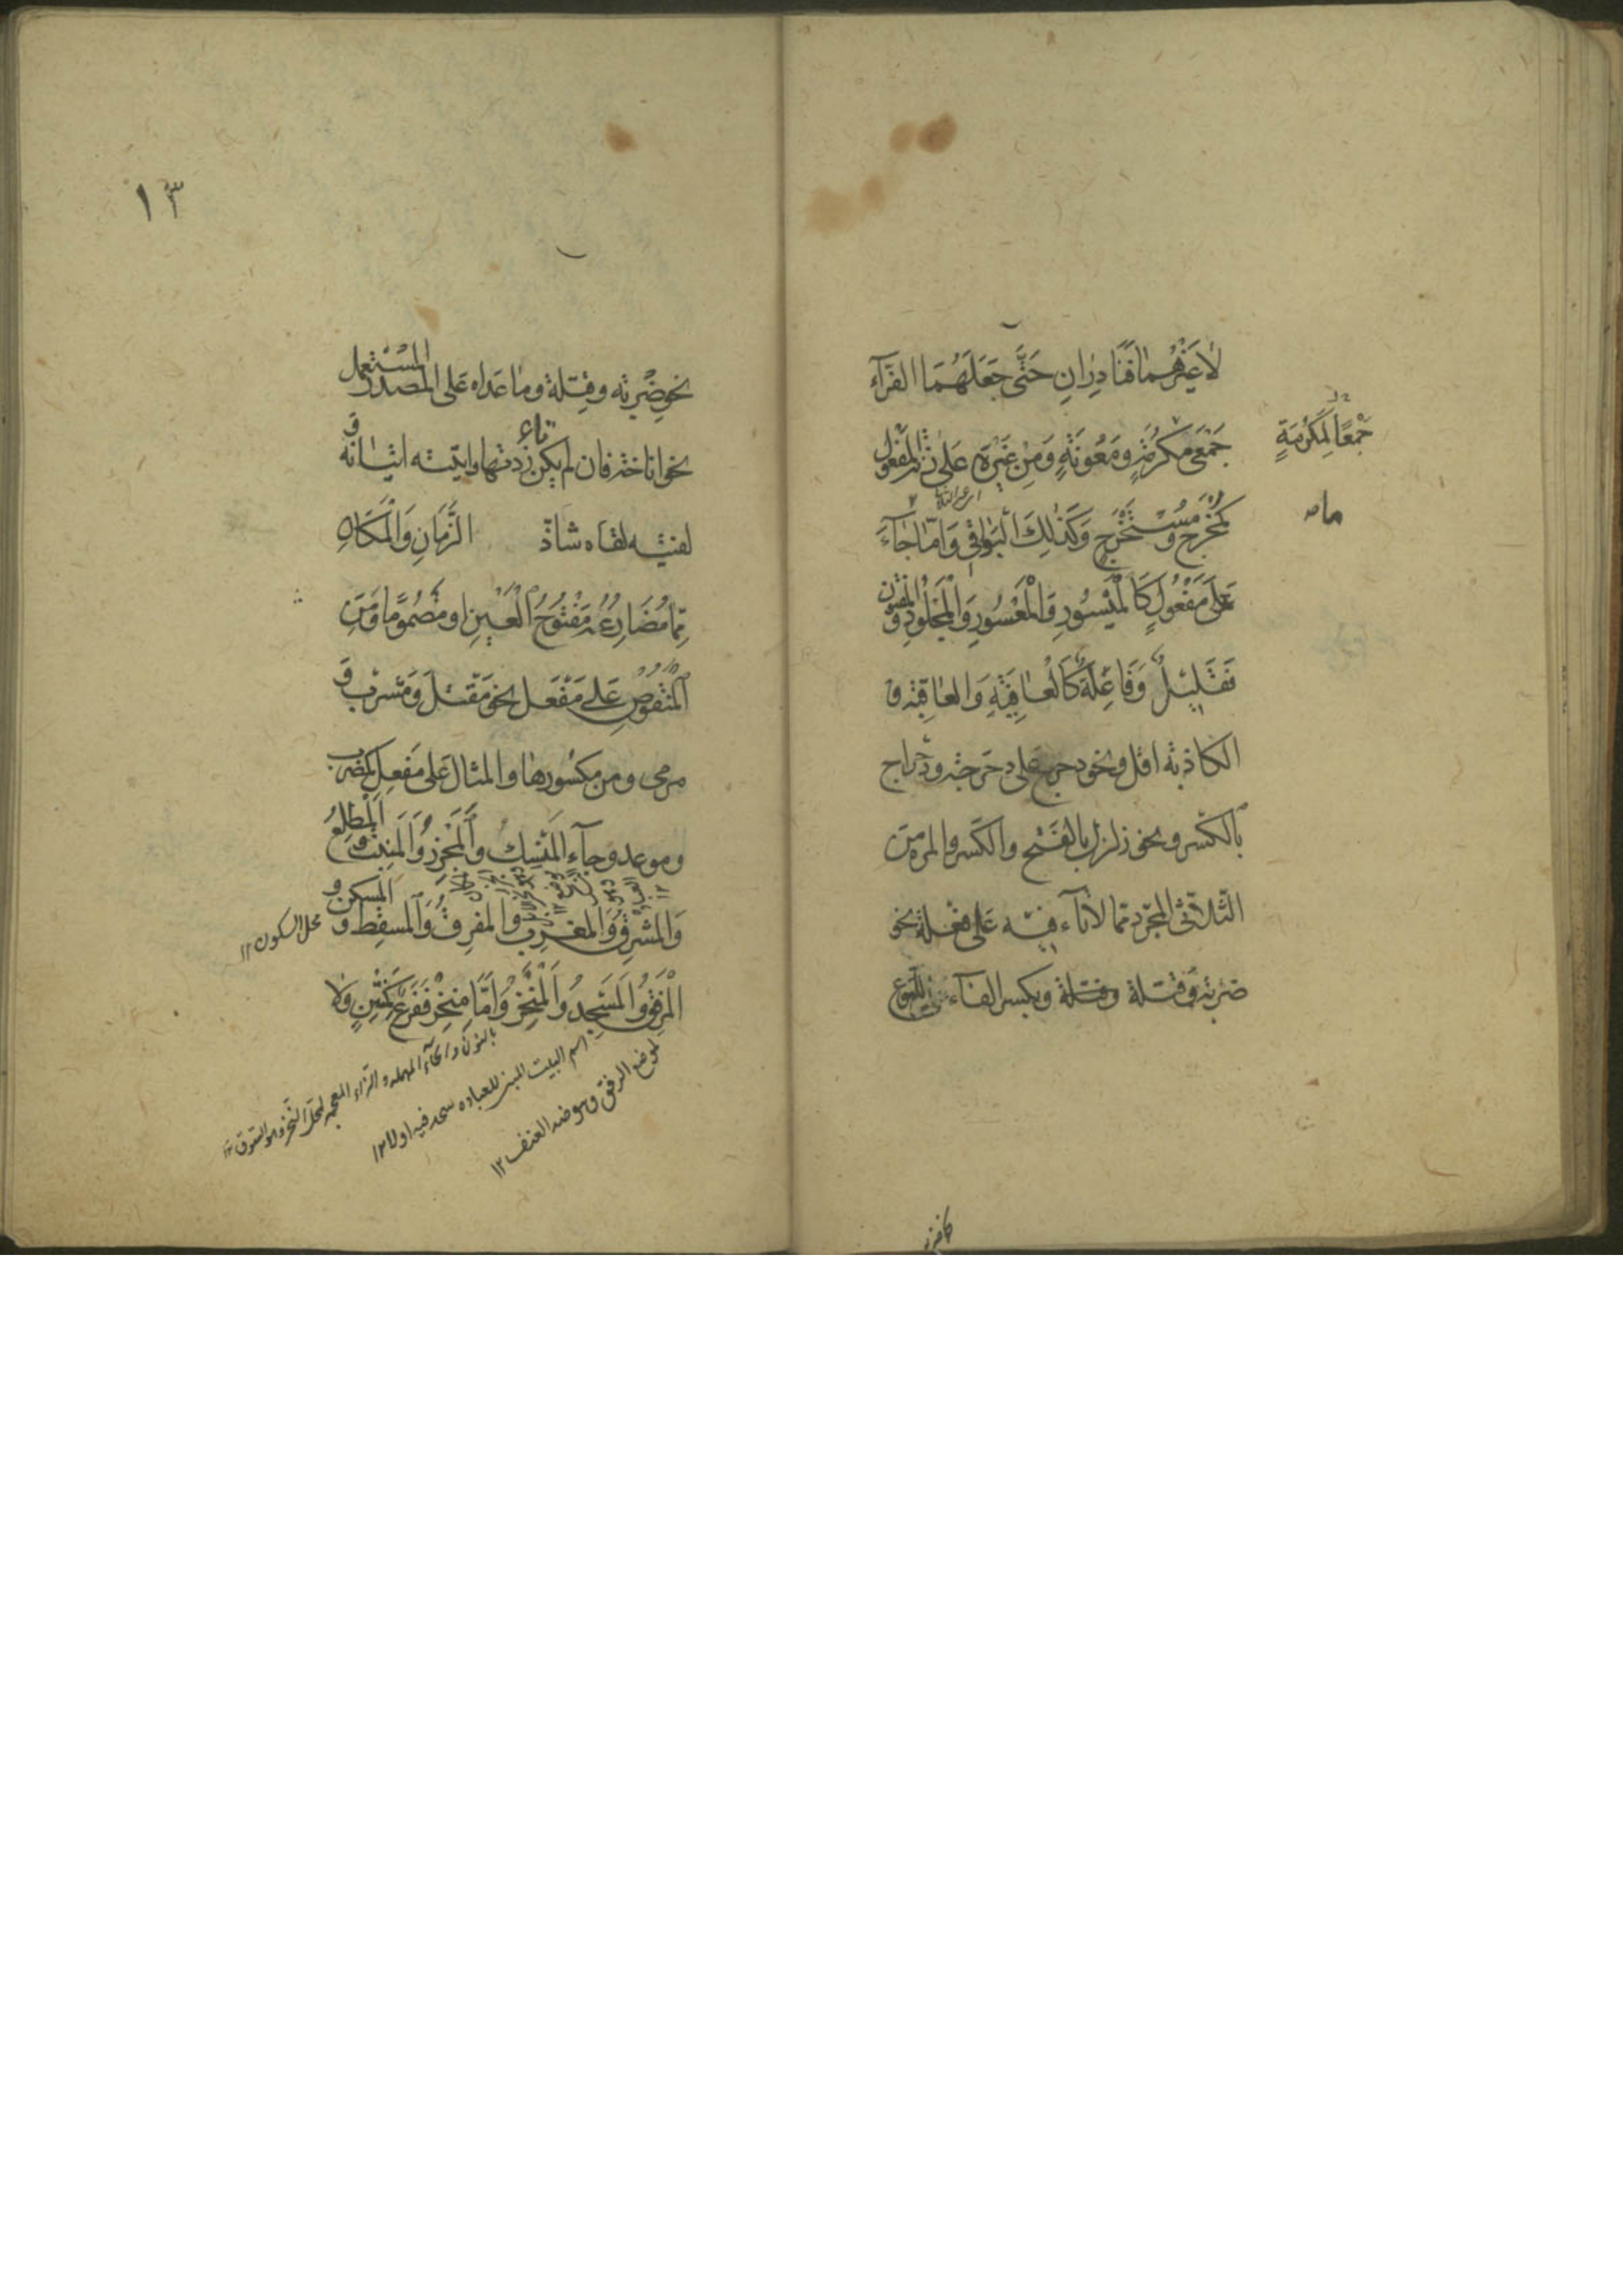 لا غيرهما فنادران حتى جعلهما الفرآء
جمعى مكرمة ومعونة ومن غيره على زنة المفعول
كمخرج ومستخرج وكذلك البواقي واما ما جآء
على مفعول كالميسور والمعسور والمجلود والمفتون
فقليل وفاعلة كالعافية والعاقبة و
الكاذبة اقل ونحو دحرج على دحرجة ودحراج
بالكسر ونحو زلزل بالفتح والكسر والمرة من
الثلاثى المجرد مما لا تآء فيه على فعلة نحو
ضربة وقتلة وبكسر الفآء للنوع
جمعا لمكرمة
كافيه
١٣
نحو ضربة وقتلة وما عداه على المصدر المستعمل
نحو اناخة فان لم يكن تاء زدتها واتيته اتيانة و
لقيته لقاه شاذ الزمان والمكان
مما مضارعه مفتوح العين او مضموما ومن
المنقوص على مفعل نحو مقتل ومشرب و
مرمى ومن مكسورها والمثال على مفعل كمضرب
وموعد وجآء المنسك والمجزر والمنبت والمطلع
والمشرق والمغرب والمفرق والمسقط والمسكن و
المرفق والمسجد والمنخر واما منخر ففرع كمنتن ولا
محل السكون ١٢
بالنون والحآء المهملة والزاء المعجمة لمحل النحز وهو السوق ١٢
اسم البيت المبني للعباده سجد فيه اولا ١٢
لموضع الرفق وهو ضد العنف ١٢